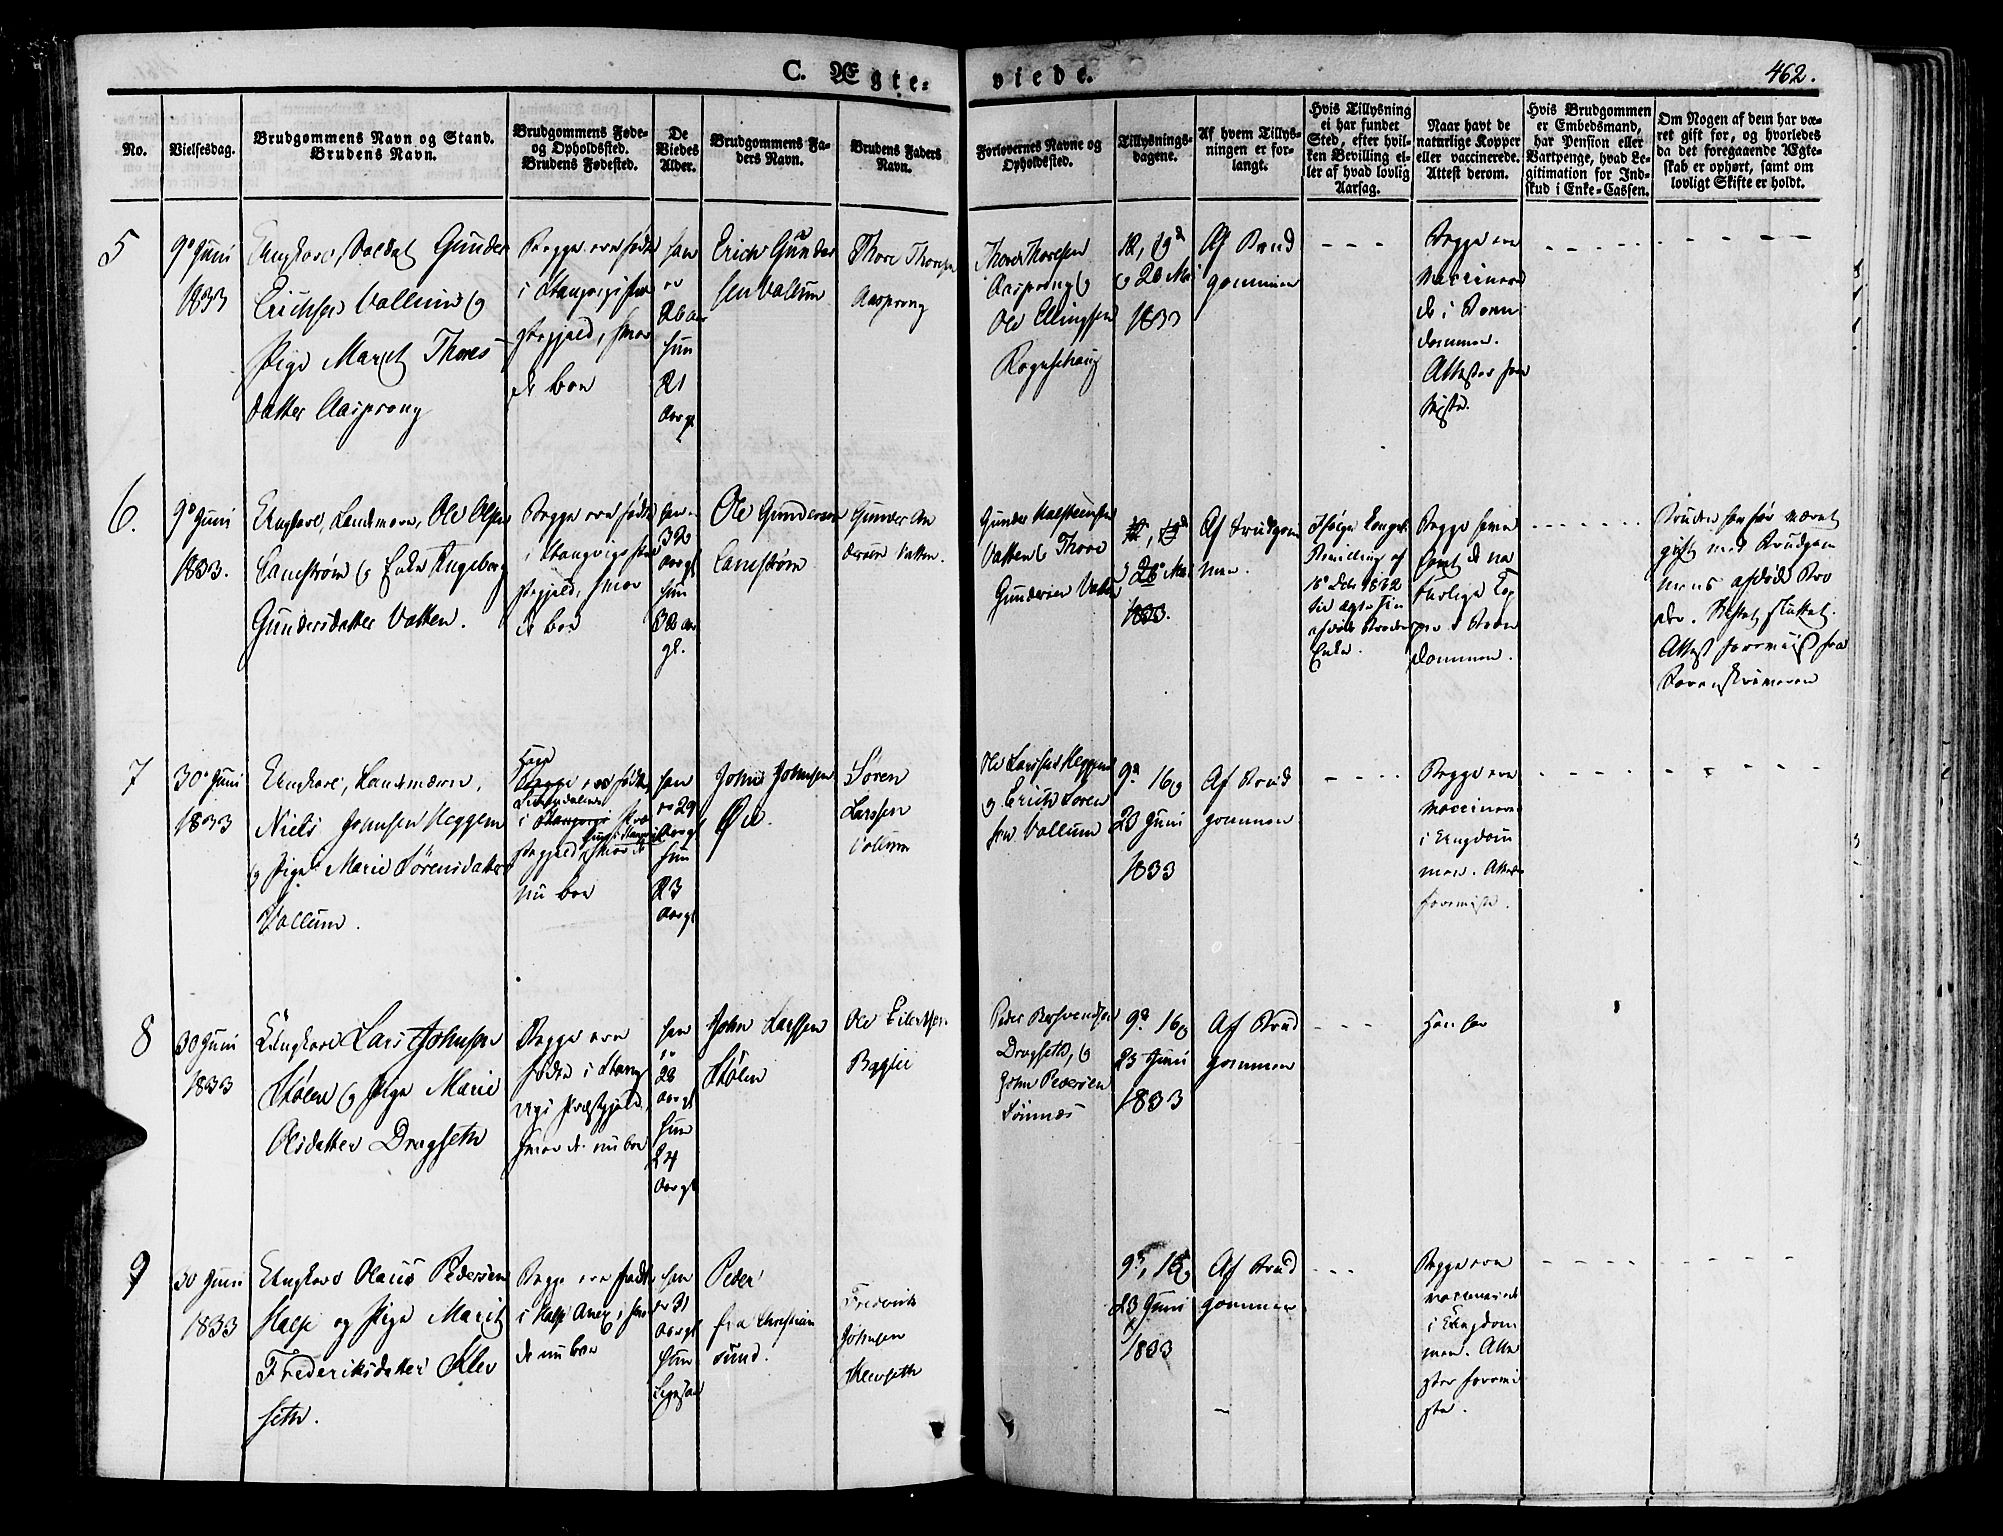 C. Ægte=
viede.
462.
No.
Vielsesdag.
Brudgommens Navn og Stand.
Brudens Navn.
Brudgommens Føde-
og Opholdssted.
Brudens Fødested.
De
Viedes
Alder.
Brudgommens Fa-
ders Navn.
Brudens Faders
Navn.
Forlovernes Navne og
Opholdssted.
Tillysnings-
dagene.
Af hvem Tillys-
ningen er for-
langt.
Hvis Tillysning
ei har fundet
Sted, efter hvil-
ken Bevilling el-
ler af hvad lovlig
Aarsag.
Naar havt de
naturlige Kopper
eller vaccinerede.
Attest derom.
Hvis Brudgommen
er Embedsmand,
har Pension eller
Vartpenge, hvad Le-
gitimation for Ind-
skud i Enke-Cassen.
Om Nogen af dem har væ-
ret gift for, og hvorledes
da det foregaaende Ægte-
skab er ophørt, samt om
lovligt Skifte er holdt.
5
9 Juni
1833
Ungkarl, Soldat Gunder
Erichsen Vollum og
Pige Marit Thores
datter Aasprong
Begge ere fødte
i Stangvigs Præ
stegjeld, hvor
de boe
han
er
26 aar
hun
21
aargl
Erich Gunder
sen Vollum
Thore Thoresen
Aasprong
Thore Thoresen
Aasprong og
Ole Ellingsen
12, 19
og 26 Mai
1833
Af Brud
gommen
Begge ere
vaccinere
de i Barn
dommen.
Attester fore
viste.
6.
9 Juni
1833.
Ungkarl, Landværn, Ole Olsen
Gundersdatter Vatten.
Begge ere fødte
i Stangvigs Præ
stegjeld, hvor
de boe
han
32
aargl
hun
32 aar
gl.
Ole Gundersen
Gunder An
dersen Vatten.
Gunder Halsteinsen
Vatten og Thore
Gundersen Vatten
26 Mai
1833.
Af Brudgom
men.
Ifølge Kongel.
Bevilling af
1832
afdøde Broders
Enke.
Begge have
havt de na
turlige Kop
per i Barn
dommen.
Bruden har før været
gift med Brudgom
mens afdøde Bro
der. Skiftet sluttet.
Attest forevist fra
7
30 Juni
1833
Ungkarl, Landværn,
Niels Johnsen Heggem
og Pige Marie Sørensdatter
Vollum.
Begge ere fødte
i Stangvigs Præ
stegjeld, hvor de
nu boe
han
er 29
aargl
hun
23
aargl
John Johnsen
Øie.
Søren
Larssen
Vollum
Ole Larssen Heggem
og Erich Søren
sen Vollum
9, 16 og
23 Juni
1833
Af Brud
gommen
Begge ere
vaccinere
i Ungdom
men. Attester
foreviste.
8
30 Juni
1833
Ungkarl Lars Johnsen
Stølen og Pige Marie
Olsdatter Dragseth
Begge ere
fødte i Stang
vigs Præstegjeld,
hvor de nu boe
han
er
28
aargl
hun
24
aargl
John Larssen
Stølen
Ole Eilertsen
Peder
Dragseth, og
John Pedersen
9, 16 og
23 Juni
1833
Af Brud
gommen
9
30 Juni
1833
Ungkarl Olaus Pedersen
Halse og Pige Marit
Frederiksdatter Klev
seth.
Begge ere fødte
i Halse Anex, hvor
de nu boe
han
er 31
aargl
hun
Peder
fra Christian
sund.
Frederik
Johnsen
Klevseth
9, 16 og
23 Juni
1833
Af Brud
gommen
Begge ere
vaccinerede
i Ungdom
men. Atte
ster forevi
ste.